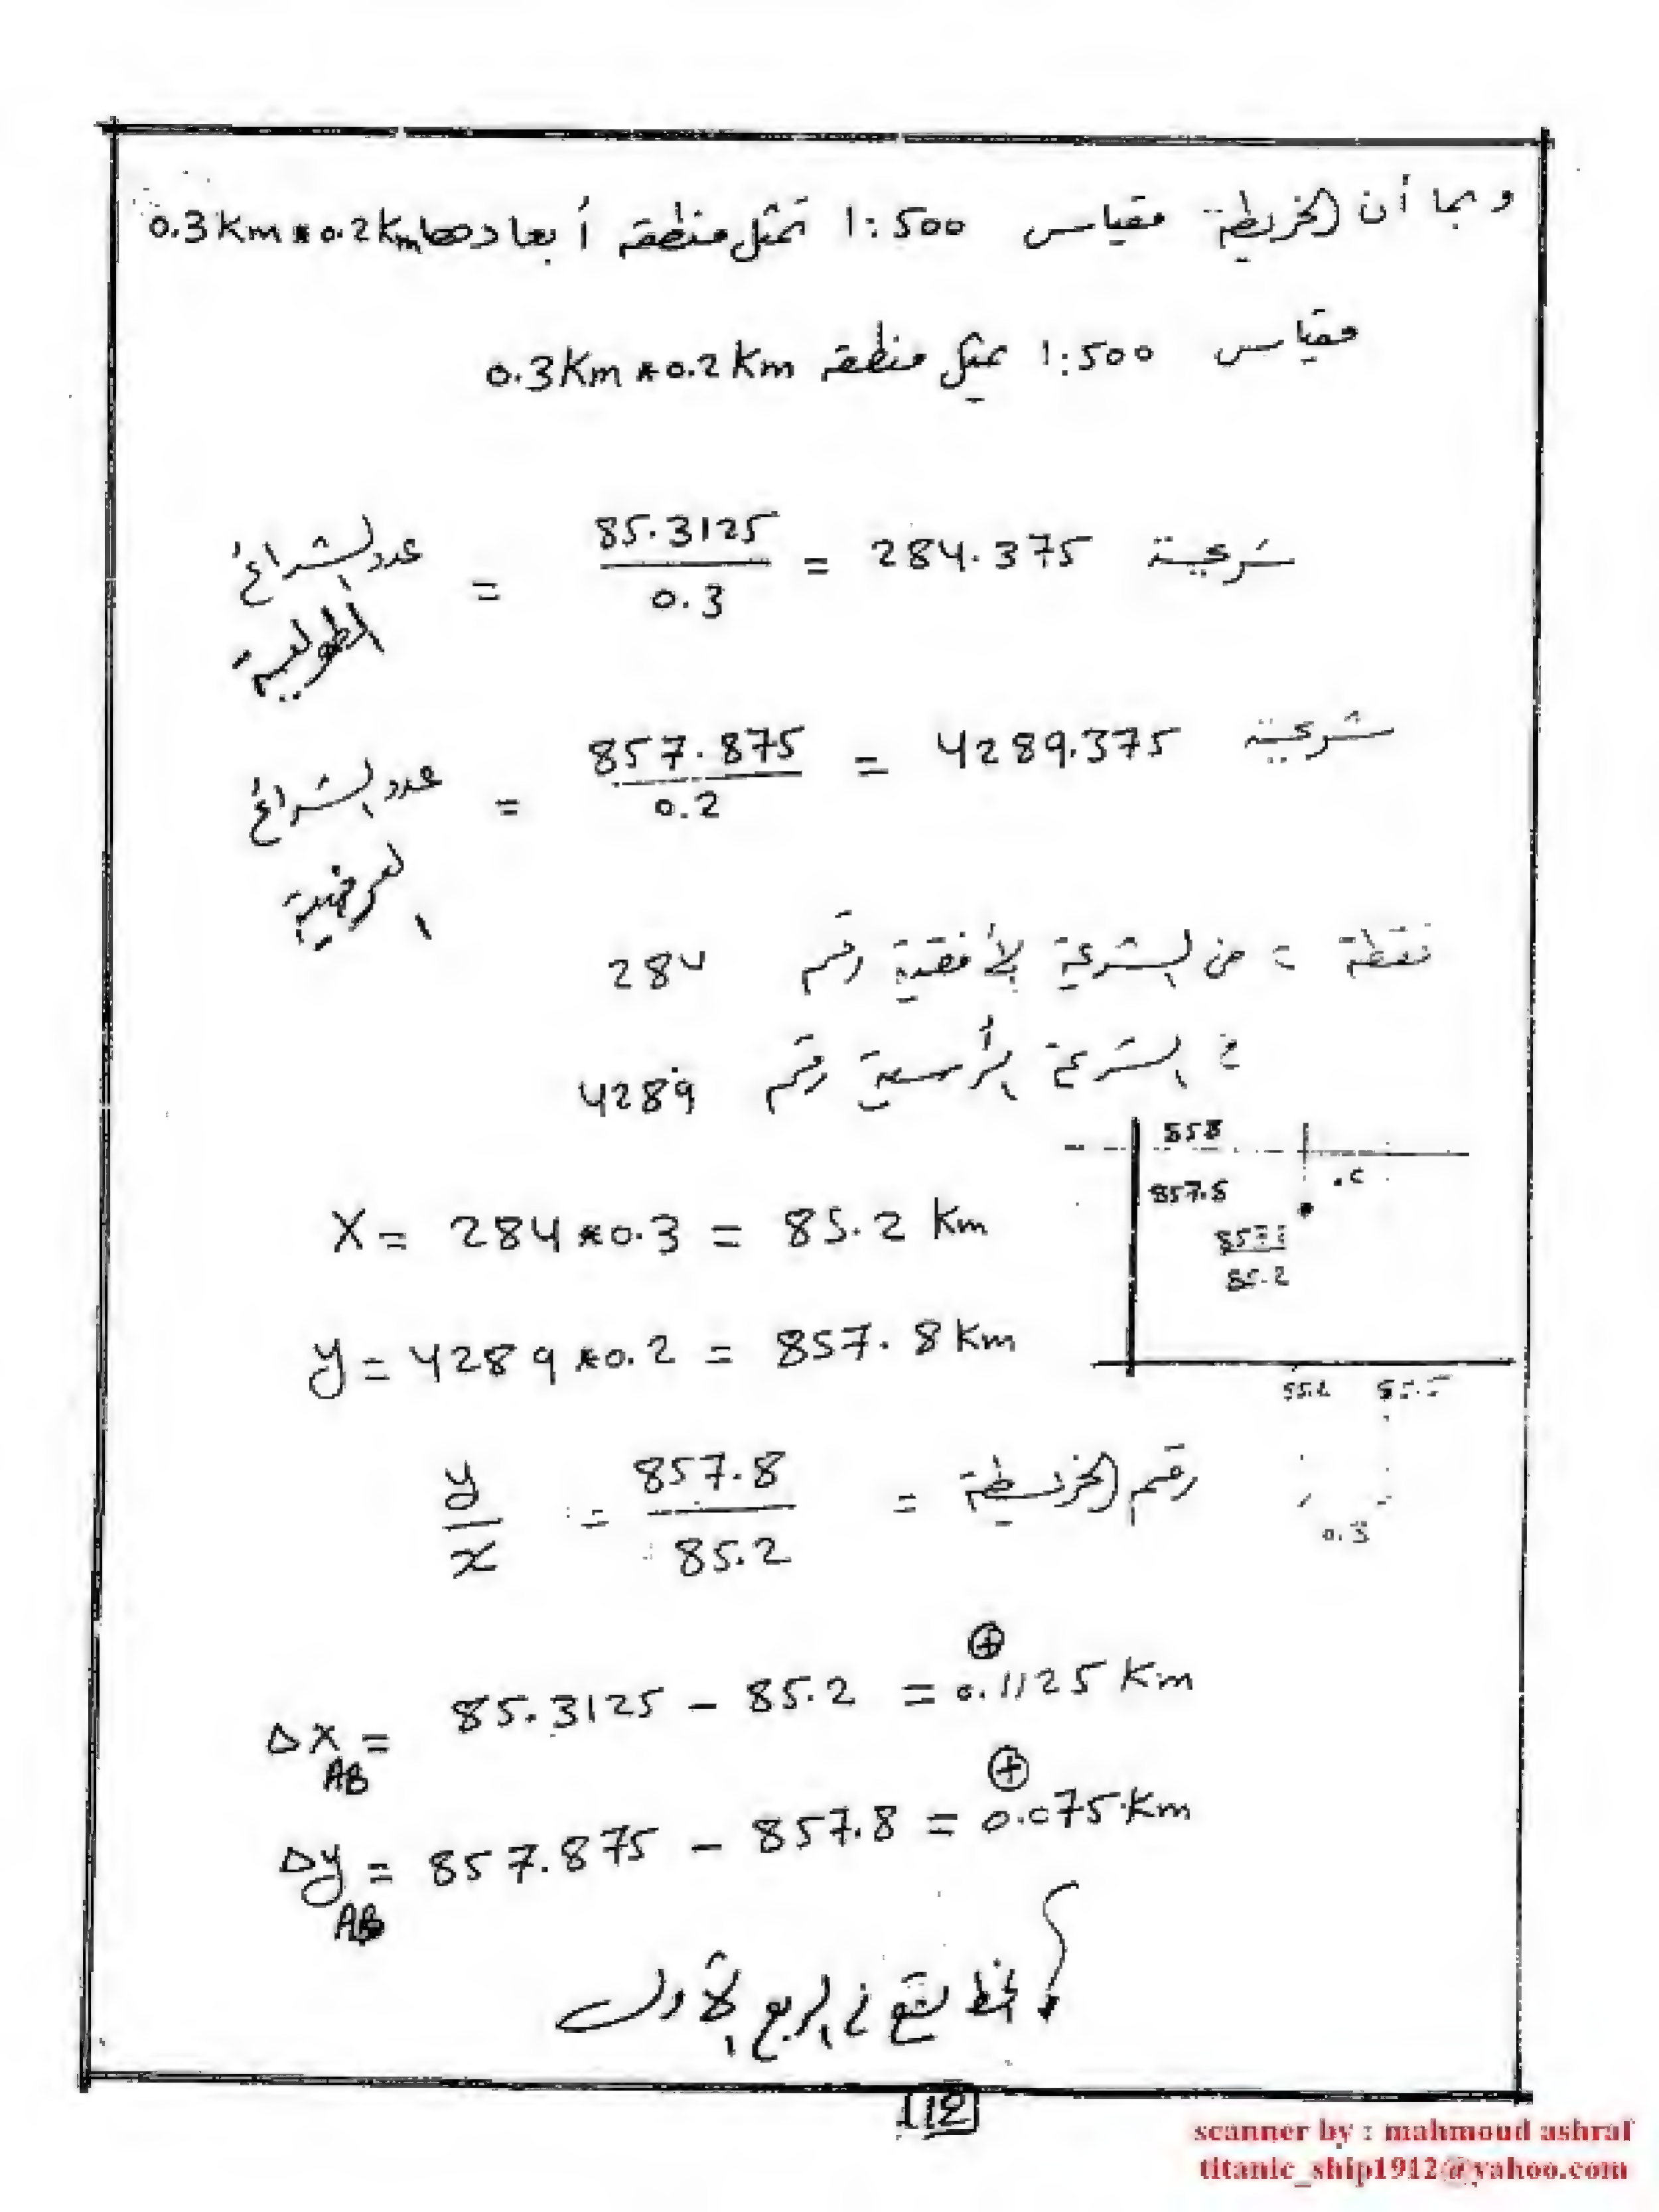 وبما أن الخريطة مقياس 1:500 تمثل منطقة أبعادها 0.3Km*0.2Km
مقياس 1:500 يمثل منطقة 0.3Km*0.2Km
عدد الشرائح الطولية = 85.3125 / 0.3 = 284.375 شريحة
عدد الشرائح العرضية = 857.875 / 0.2 = 4289.375 شريحة
نقطة c من الشريحة الأفقية رقم 284
c الشريحة الرأسية رقم 4289
858
.c
857.8
85.2
X = 284*0.3 = 85.2 Km
y = 4289*0.2 = 857.8 Km
0.3
رقم الخريطة = 857.8 / 85.2 = y / x
ΔX AB = 85.3125 - 85.2 = ⊕ 0.1125 Km
Δy AB = 857.875 - 857.8 = ⊕ 0.075 Km
الخط يقع في الربع الأول
112
scanner by : mahmoud ashraf
titanic_ship1912@yahoo.com